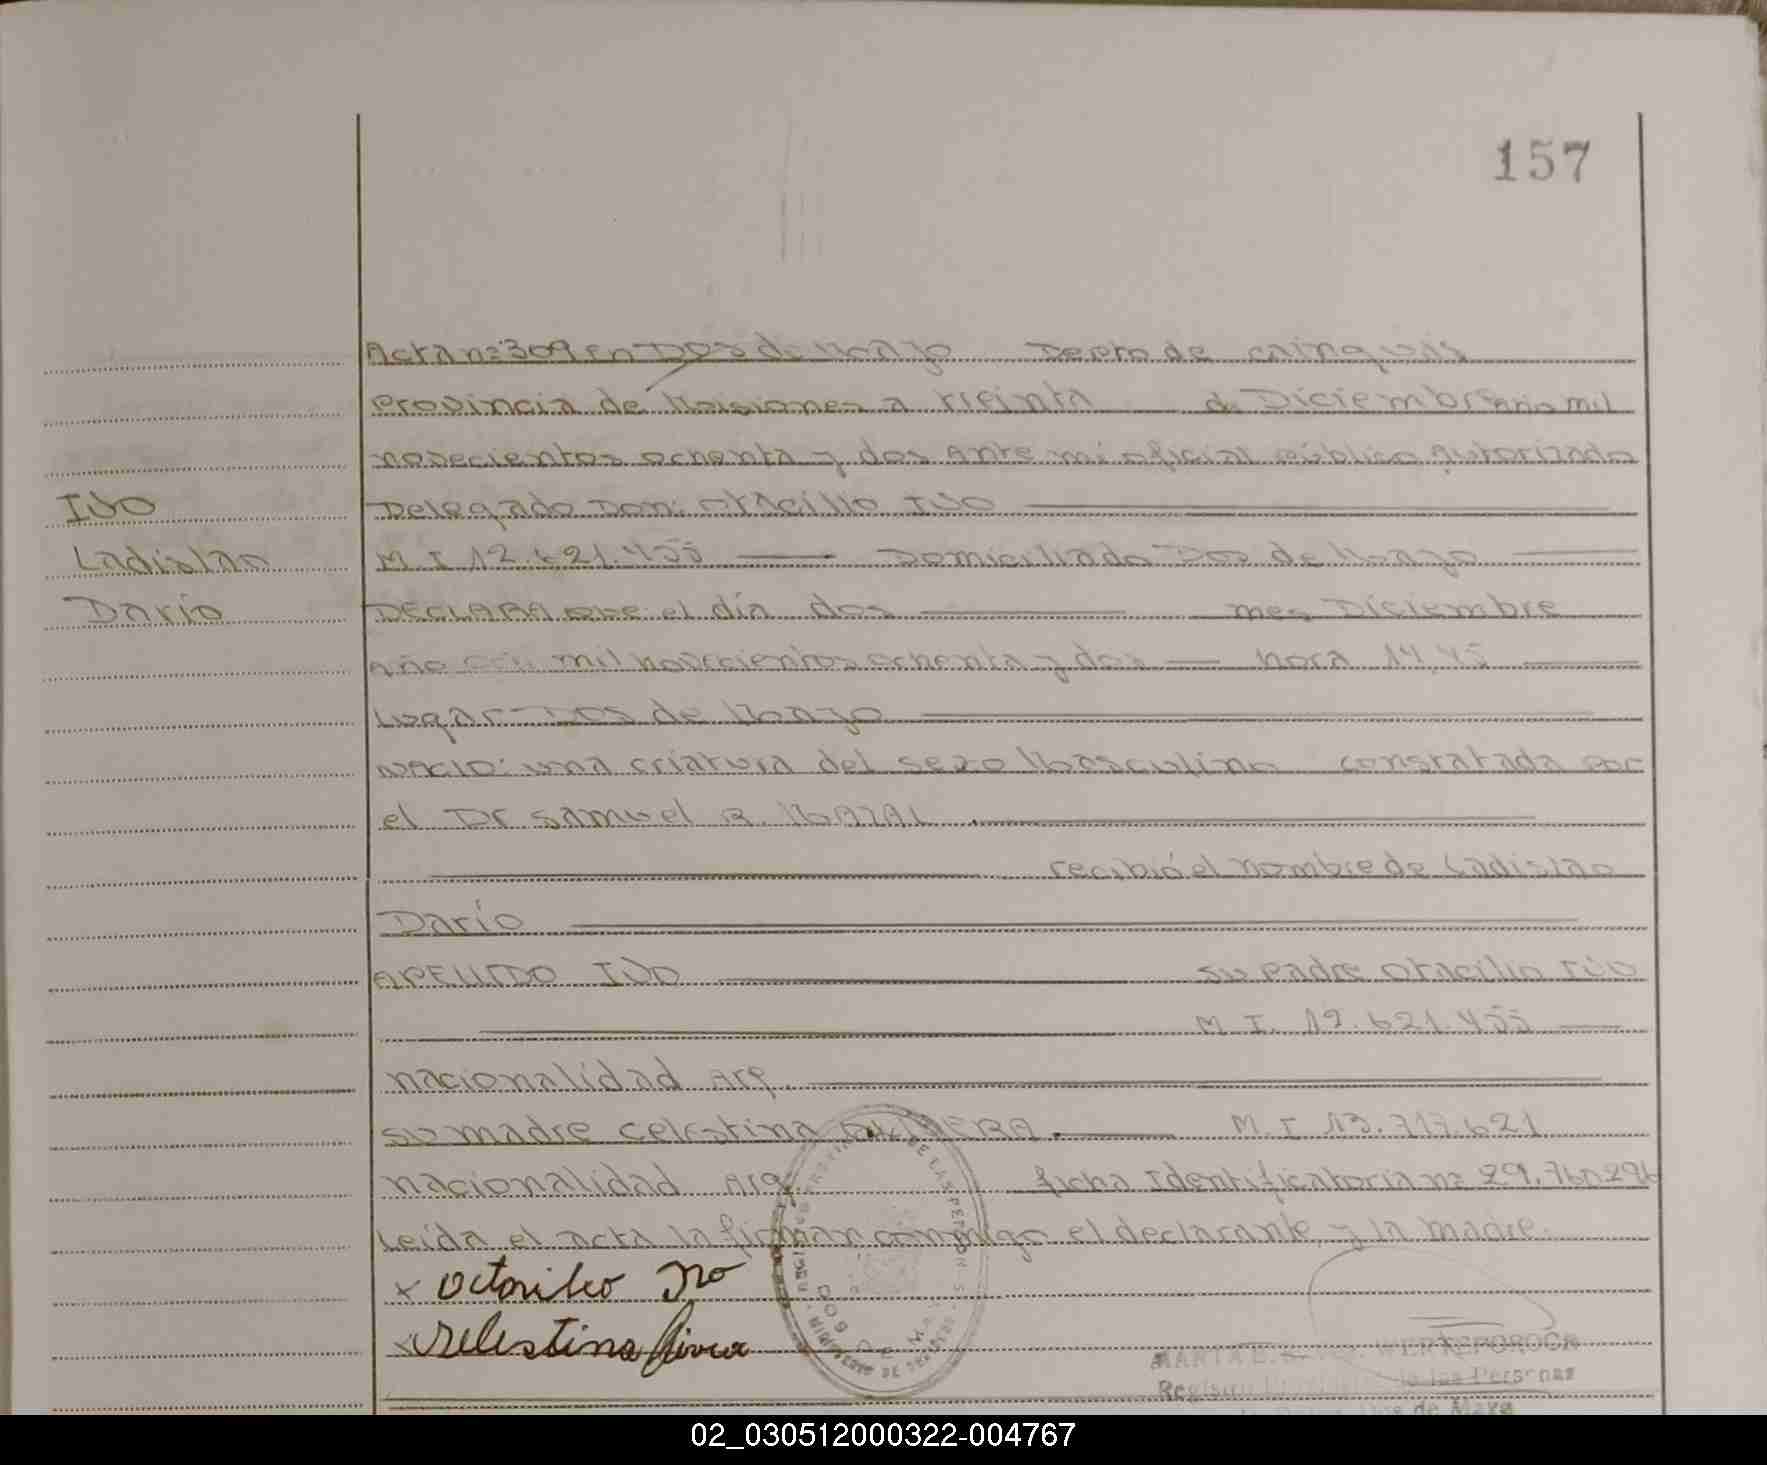 157
Acta nº 309 en Dos de Mayo Depto de Cainguás
Provincia de Misiones a treinta de Diciembre año mil
novecientos ochenta y dos Ante mi oficial público Autorizado
Ivo
Delegado Don: Otacilio Ivo
Ladislao
M.I 12.621.455 Domiciliado Dos de Mayo
Darío
DECLARA que: el día dos mes Diciembre
Año mil novecientos ochenta y dos hora 14,45
Lugar Dos de Mayo
NACIO: una criatura del sexo Masculino constatada por
el Dr Samuel R.
recibió el nombre de Ladislao
Darío
APELLIDO Ivo su padre Otacilio Ivo
M.I. 12.621.455
nacionalidad Arg.
su madre Celestina M.I 13.717.621
nacionalidad Arg. ficha Identificatoria nº 29.760.296
Leida el acta la firman conmigo el declarante y la madre.
x
x Celestina
Registro de las Personas
Dos de Mayo
02_030512000322-004767